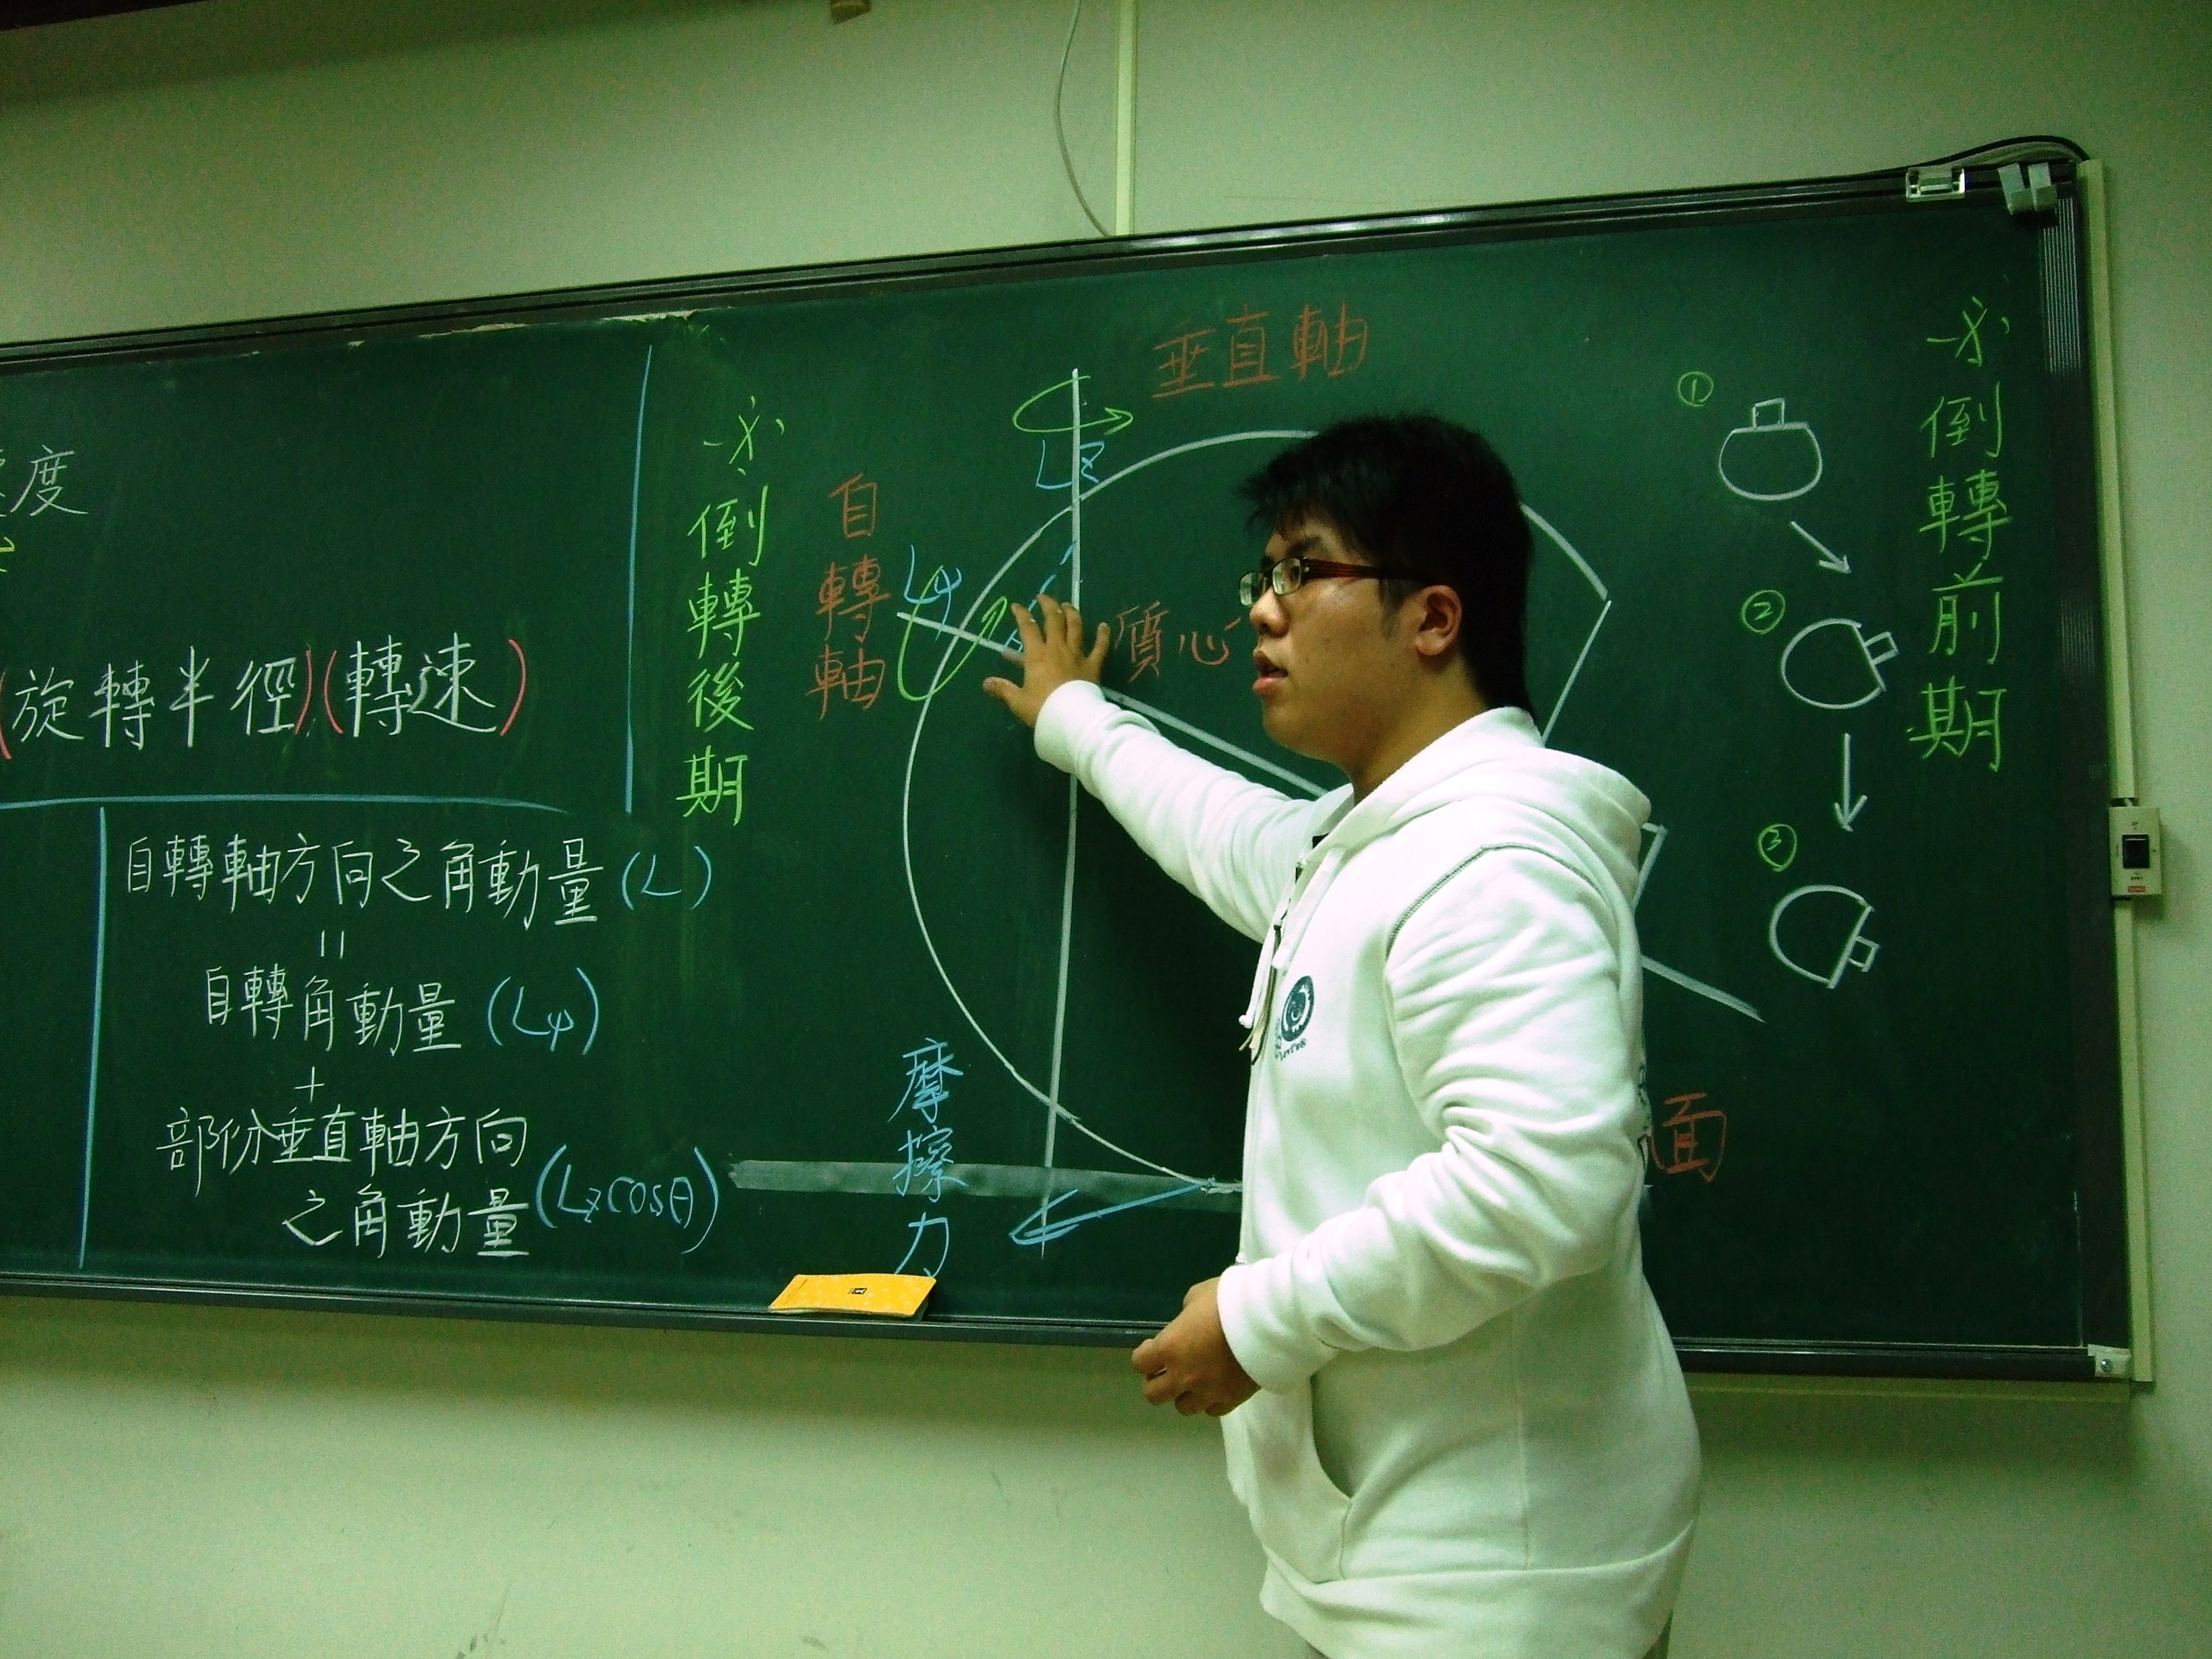 度
(旋轉半徑)(轉速)
自轉軸方向之角動量(L)
=
自轉角動量(Lψ)
+
部份垂直軸方向
之角動量(Lz cosθ)
※倒轉後期
垂直軸
Lz
自轉軸
Lψ
質心
摩擦力
面
※倒轉前期
①
②
③